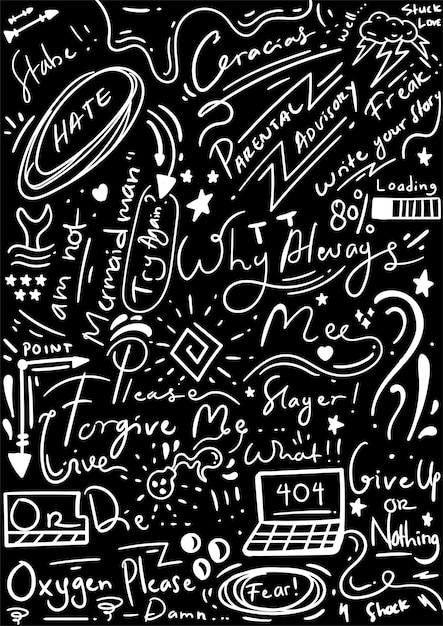 Stuck
Love
Well...
Stabe!!
Ceracias
HATE
PARENTAL
ADVISORY
Freak
Write your Story
Loading
80%
I am not
Mermaidman"
Try Again?
Why Always
Mee
POINT
Please
Forgive Me
Slayer!
Live
What!!
OR Die
404
Give Up
OR
Nothing
Oxygen Please
Damn...
Fear!
Shock